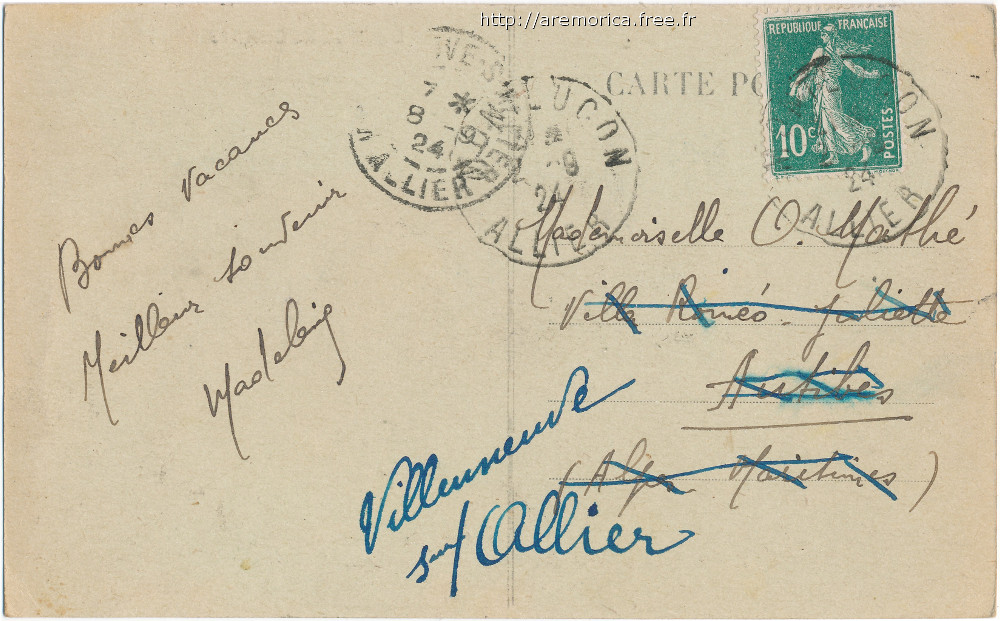 http://aremorica.free.fr
CARTE PO
REPUBLIQUE FRANÇAISE
10c
POSTES
VES
7
8 - 9
24
S ALLIER
LUÇON
* 
- 9
24
ALLIER
ON
24
ALLIER
Bonnes vacances
Meilleur souvenir
Madeleine
Mademoiselle O. Mathé
Villa Roméo - Juliette
Antibes
(Alpes Maritimes)
Villeneuve
sur Allier